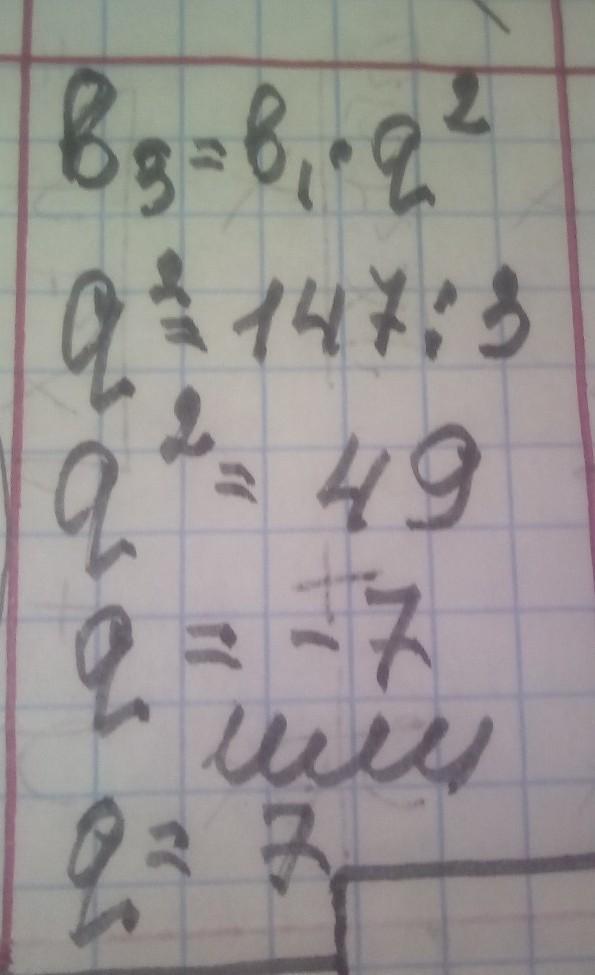 b₃ = b₁ · q²
q² = 147 : 3
q² = 49
q = -7
или
q = 7